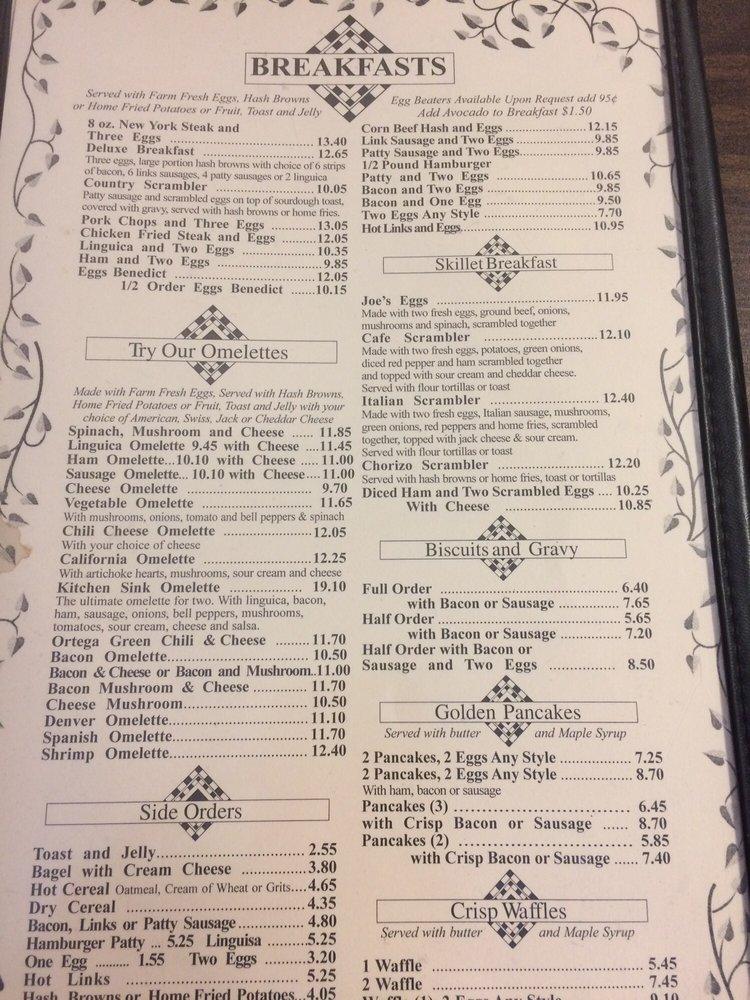 BREAKFASTS
Served with Farm Fresh Eggs, Hash Browns
or Home Fried Potatoes or Fruit, Toast and Jelly
Egg Beaters Available Upon Request add 95¢
Add Avocado to Breakfast $1.50
8 oz. New York Steak and
Three Eggs ................. 13.40
Deluxe Breakfast ................. 12.65
Three eggs, large portion hash browns with choice of 6 strips
of bacon, 6 links sausages, 4 patty sausages or 2 linguica
Country Scrambler ................. 10.05
Patty sausage and scrambled eggs on top of sourdough toast,
covered with gravy, served with hash browns or home fries.
Pork Chops and Three Eggs ........... 13.05
Chicken Fried Steak and Eggs ........ 12.05
Linguica and Two Eggs ................. 10.35
Ham and Two Eggs ................. 9.85
Eggs Benedict ................. 12.05
1/2 Order Eggs Benedict ...... 10.15
Try Our Omelettes
Made with Farm Fresh Eggs, Served with Hash Browns,
Home Fried Potatoes or Fruit, Toast and Jelly with your
choice of American, Swiss, Jack or Cheddar Cheese
Spinach, Mushroom and Cheese ...... 11.85
Linguica Omelette 9.45 with Cheese ....11.45
Ham Omelette...10.10 with Cheese ..... 11.00
Sausage Omelette... 10.10 with Cheese.... 11.00
Cheese Omelette ................. 9.70
Vegetable Omelette ................. 11.65
With mushrooms, onions, tomato and bell peppers & spinach
Chili Cheese Omelette ................. 12.05
With your choice of cheese
California Omelette ................. 12.25
With artichoke hearts, mushrooms, sour cream and cheese
Kitchen Sink Omelette ................. 19.10
The ultimate omelette for two. With linguica, bacon,
ham, sausage, onions, bell peppers, mushrooms,
tomatoes, sour cream, cheese and salsa.
Ortega Green Chili & Cheese ........... 11.70
Bacon Omelette................. 10.50
Bacon & Cheese or Bacon and Mushroom..11.00
Bacon Mushroom & Cheese ............ 11.70
Cheese Mushroom................. 10.50
Denver Omelette................. 11.10
Spanish Omelette................. 11.70
Shrimp Omelette................. 12.40
Side Orders
Toast and Jelly................. 2.55
Bagel with Cream Cheese ............ 3.80
Hot Cereal Oatmeal, Cream of Wheat or Grits....4.65
Dry Cereal ................. 4.35
Bacon, Links or Patty Sausage.............. 4.80
Hamburger Patty ... 5.25 Linguisa ............5.25
One Egg .......... 1.55 Two Eggs ............3.20
Hot Links ................. 5.25
Hash Browns or Home Fried Potatoes...4.05
Corn Beef Hash and Eggs ................. 12.15
Link Sausage and Two Eggs ................. 9.85
Patty Sausage and Two Eggs................. 9.85
1/2 Pound Hamburger
Patty and Two Eggs ................. 10.65
Bacon and Two Eggs ................. 9.85
Bacon and One Egg ................. 9.50
Two Eggs Any Style ................. 7.70
Hot Links and Eggs................. 10.95
Skillet Breakfast
Joe's Eggs ................. 11.95
Made with two fresh eggs, ground beef, onions,
mushrooms and spinach, scrambled together
Cafe Scrambler ................. 12.10
Made with two fresh eggs, potatoes, green onions,
diced red pepper and ham scrambled together
and topped with sour cream and cheddar cheese.
Served with flour tortillas or toast
Italian Scrambler ................. 12.40
Made with two fresh eggs, Italian sausage, mushrooms,
green onions, red peppers and home fries, scrambled
together, topped with jack cheese & sour cream.
Served with flour tortillas or toast
Chorizo Scrambler ................. 12.20
Served with hash browns or home fries, toast or tortillas
Diced Ham and Two Scrambled Eggs .... 10.25
With Cheese ................. 10.85
Biscuits and Gravy
Full Order ................. 6.40
with Bacon or Sausage ................. 7.65
Half Order ................. 5.65
with Bacon or Sausage ................. 7.20
Half Order with Bacon or
Sausage and Two Eggs ................. 8.50
Golden Pancakes
Served with butter and Maple Syrup
2 Pancakes, 2 Eggs Any Style ................. 7.25
2 Pancakes, 2 Eggs Any Style ................. 8.70
With ham, bacon or sausage
Pancakes (3) ................. 6.45
with Crisp Bacon or Sausage ...... 8.70
Pancakes (2) ................. 5.85
with Crisp Bacon or Sausage ...... 7.40
Crisp Waffles
Served with butter and Maple Syrup
1 Waffle ................. 5.45
2 Waffle ................. 7.45
Waffle (1), 2 Eggs Any Style